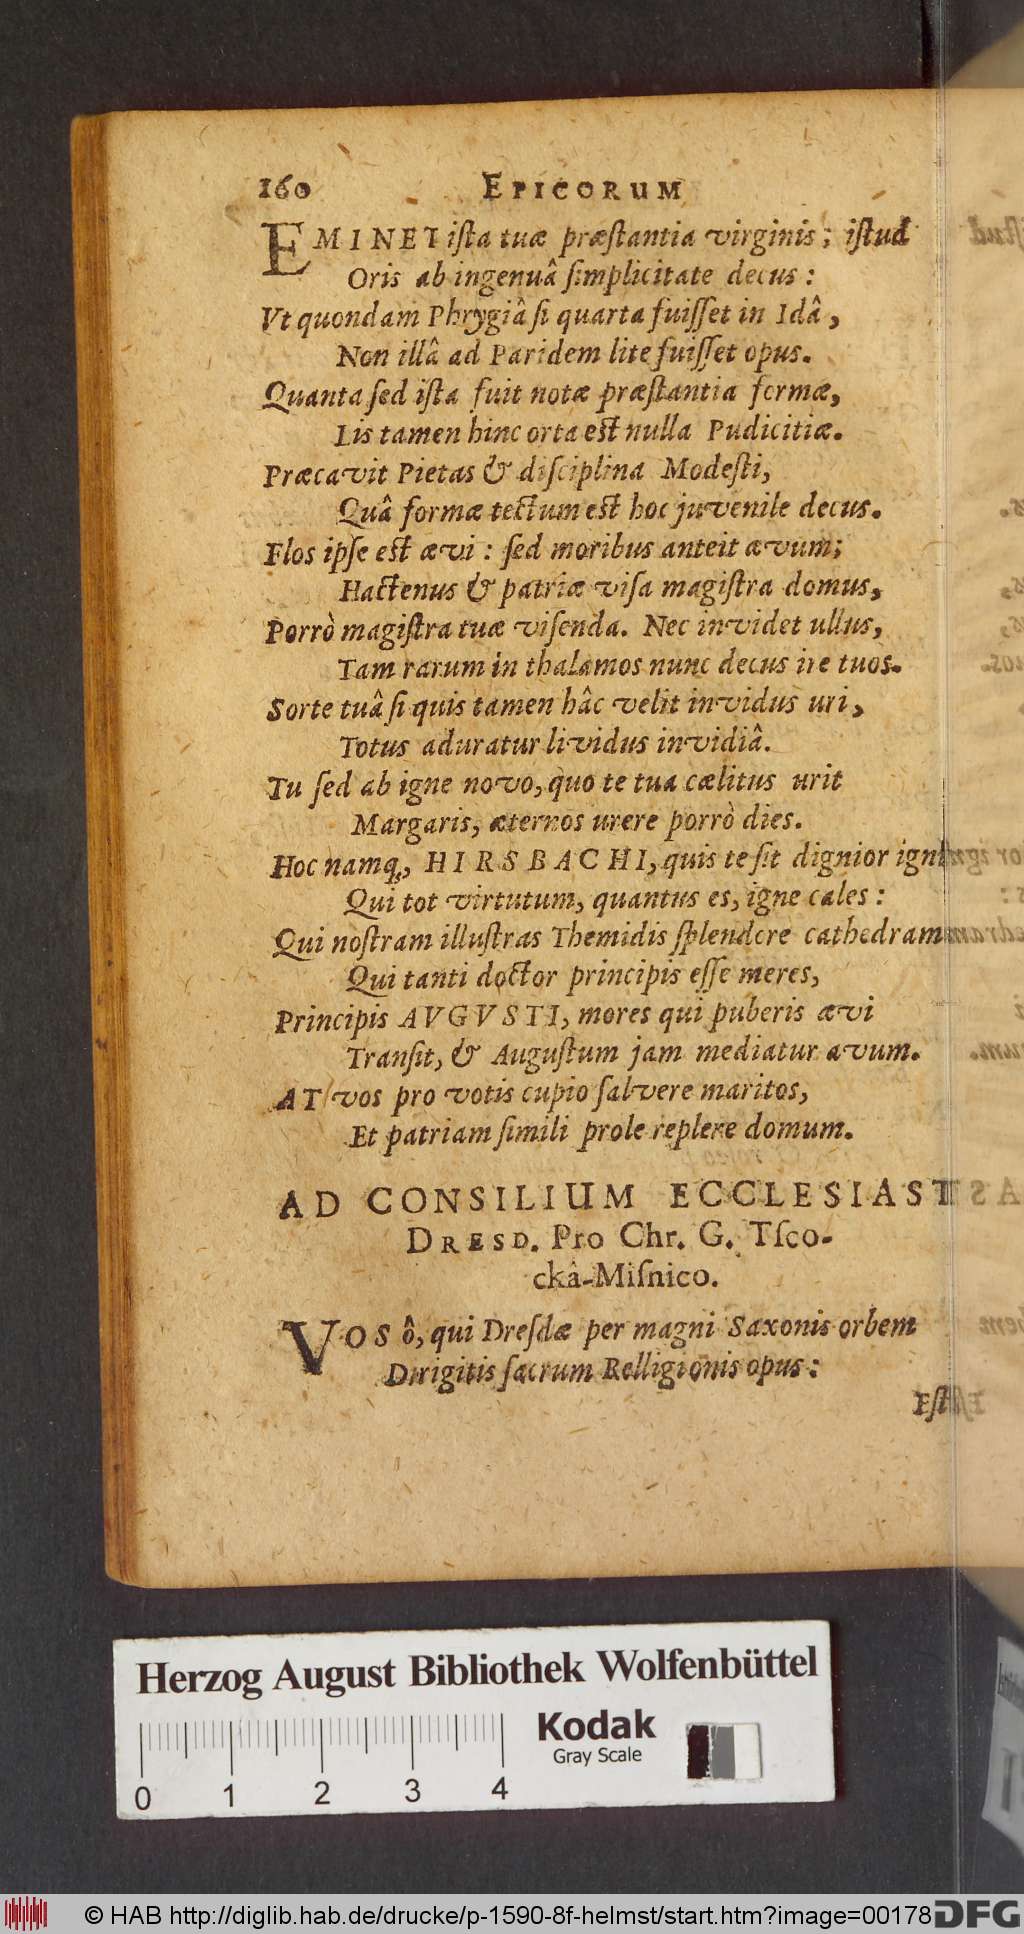 160 EPICORUM
EMINET iſta tuæ præſtantia virginis; iſtud
Oris ab ingenuâ ſimplicitate decus:
Vt quondam Phrygiâ ſi quarta fuiſſet in Idâ,
Non illâ ad Paridem lite fuiſſet opus.
Quanta ſed iſta fuit notæ præſtantia formæ,
Lis tamen hinc orta eſt nulla Pudicitiæ.
Præcavit Pietas & diſciplina Modeſti,
Quâ formæ tectum eſt hoc juvenile decus.
Flos ipſe eſt ævi: ſed moribus anteit ævum;
Hactenus & patriæ viſa magiſtra domus,
Porrò magiſtra tuæ viſenda. Nec invidet ullus,
Tam rarum in thalamos nunc decus ire tuos.
Sorte tuâ ſi quis tamen hâc velit invidus uri,
Totus aduratur lividus invidiâ.
Tu ſed ab igne novo, quo te tua cælitus urit
Margaris, æternos urere porrò dies.
Hoc namq;, HIRSBACHI, quis te ſit dignior igni
Qui tot virtutum, quantus es, igne cales:
Qui noſtram illuſtras Themidis ſplendere cathedram
Qui tanti doctor principis eſſe meres,
Principis AVGVSTI, mores qui puberis ævi
Tranſit, & Auguſtum jam mediatur avum.
AT vos pro votis cupio ſalvere maritos,
Et patriam ſimili prole replere domum.
AD CONSILIUM ECCLESIAST
DRESD. Pro Chr. G. Tſco-
ckâ-Miſnico.
VOS ô, qui Dreſdæ per magni Saxonis orbem
Dirigitis ſacrum Relligionis opus:
Eſt
Herzog August Bibliothek Wolfenbüttel
Kodak
Gray Scale
0 1 2 3 4
© HAB http://diglib.hab.de/drucke/p-1590-8f-helmst/start.htm?image=00178
DFG